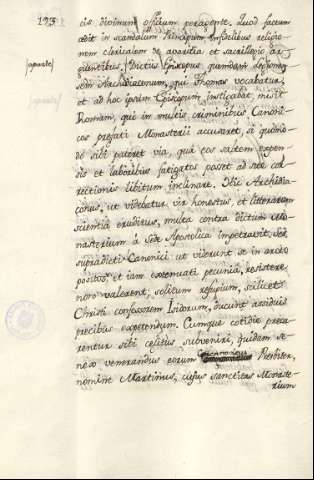 193
cis divinum officium peragente. Quod factum
cedit in scandalum Principum infidelibus religio-
nem clericalem de avaritia et sacrilegio ar-
guentibus, Dictus Episcopus quemdam Legionen-
sem Archidiaconum, qui Thomas vocabatur
et ad hoc ipsum Episcopum instigabat, misit
Romam, qui in multis criminibus Canoni-
cos prefati Monasterii accusaret, si quomo-
do sibi pateret via, qua eos saltem expen-
sis et laboribus fatigatos posset ad suae cor-
rectionis libitum inclinare. Hic Archidia-
conus, ut videbatur vir honestus, et litterarum
scientia eruditus, multa contra dictum Mo-
nasterium à Sede Apostolica impetravit. Sed
supradicti Canonici ut viderunt se in arcto
positos, et iam extenuati pecunia, resistere
non valerent, solitum refugium, scilicet
Christi confessorem Isidorum, ducunt assiduis
precibus expetendum. Cumque cotidie preca-
rentur sibi celitus subveniri, quidam se-
nex venerandus eorum Presbiter,
nomine Martinus, cujus sanctitas Monaste-
rium